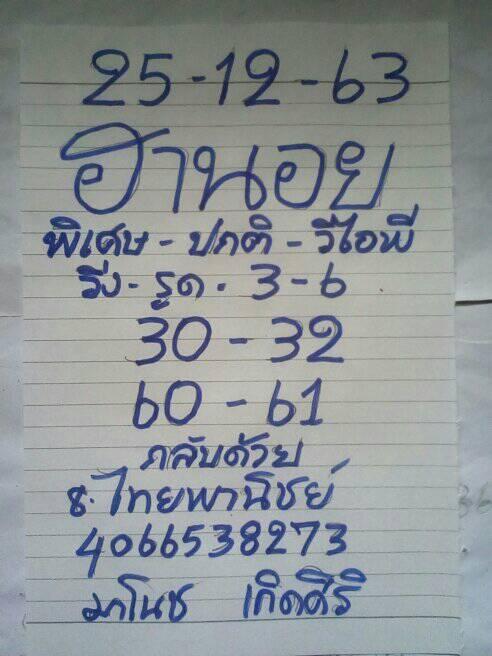 25-12-63
ฮานอย
พิเศษ - ปกติ - วีไอพี
วิ่ง - รูด - 3-6
30-32
60-61
กลับด้วย
ธ.ไทยพานิชย์
4066538273
มาโนช เกิดศิริ